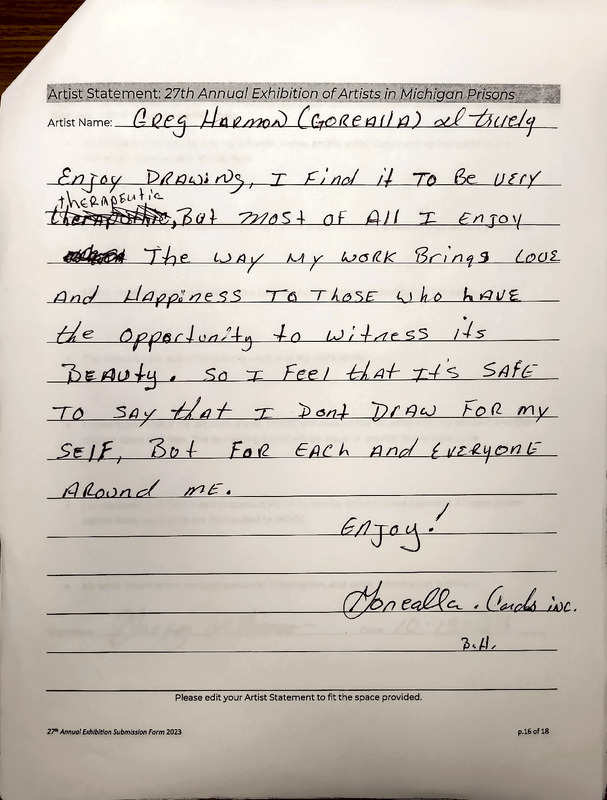 Artist Statement: 27th Annual Exhibition of Artists in Michigan Prisons
Artist Name: Greg Harmon (Gorealla) I truely
Enjoy Drawing, I Find it To Be very
therapeutic
, But most of All I Enjoy
The way my work Brings Love
And Happiness To Those who have
the opportunity to witness its
Beauty. So I Feel that It's SAFE
To say that I Dont Draw For my
SELF, But For Each And Everyone
Around me.
Enjoy!
Gorealla. Cards inc.
B.H.
Please edit your Artist Statement to fit the space provided.
27th Annual Exhibition Submission Form 2023
p.16 of 18